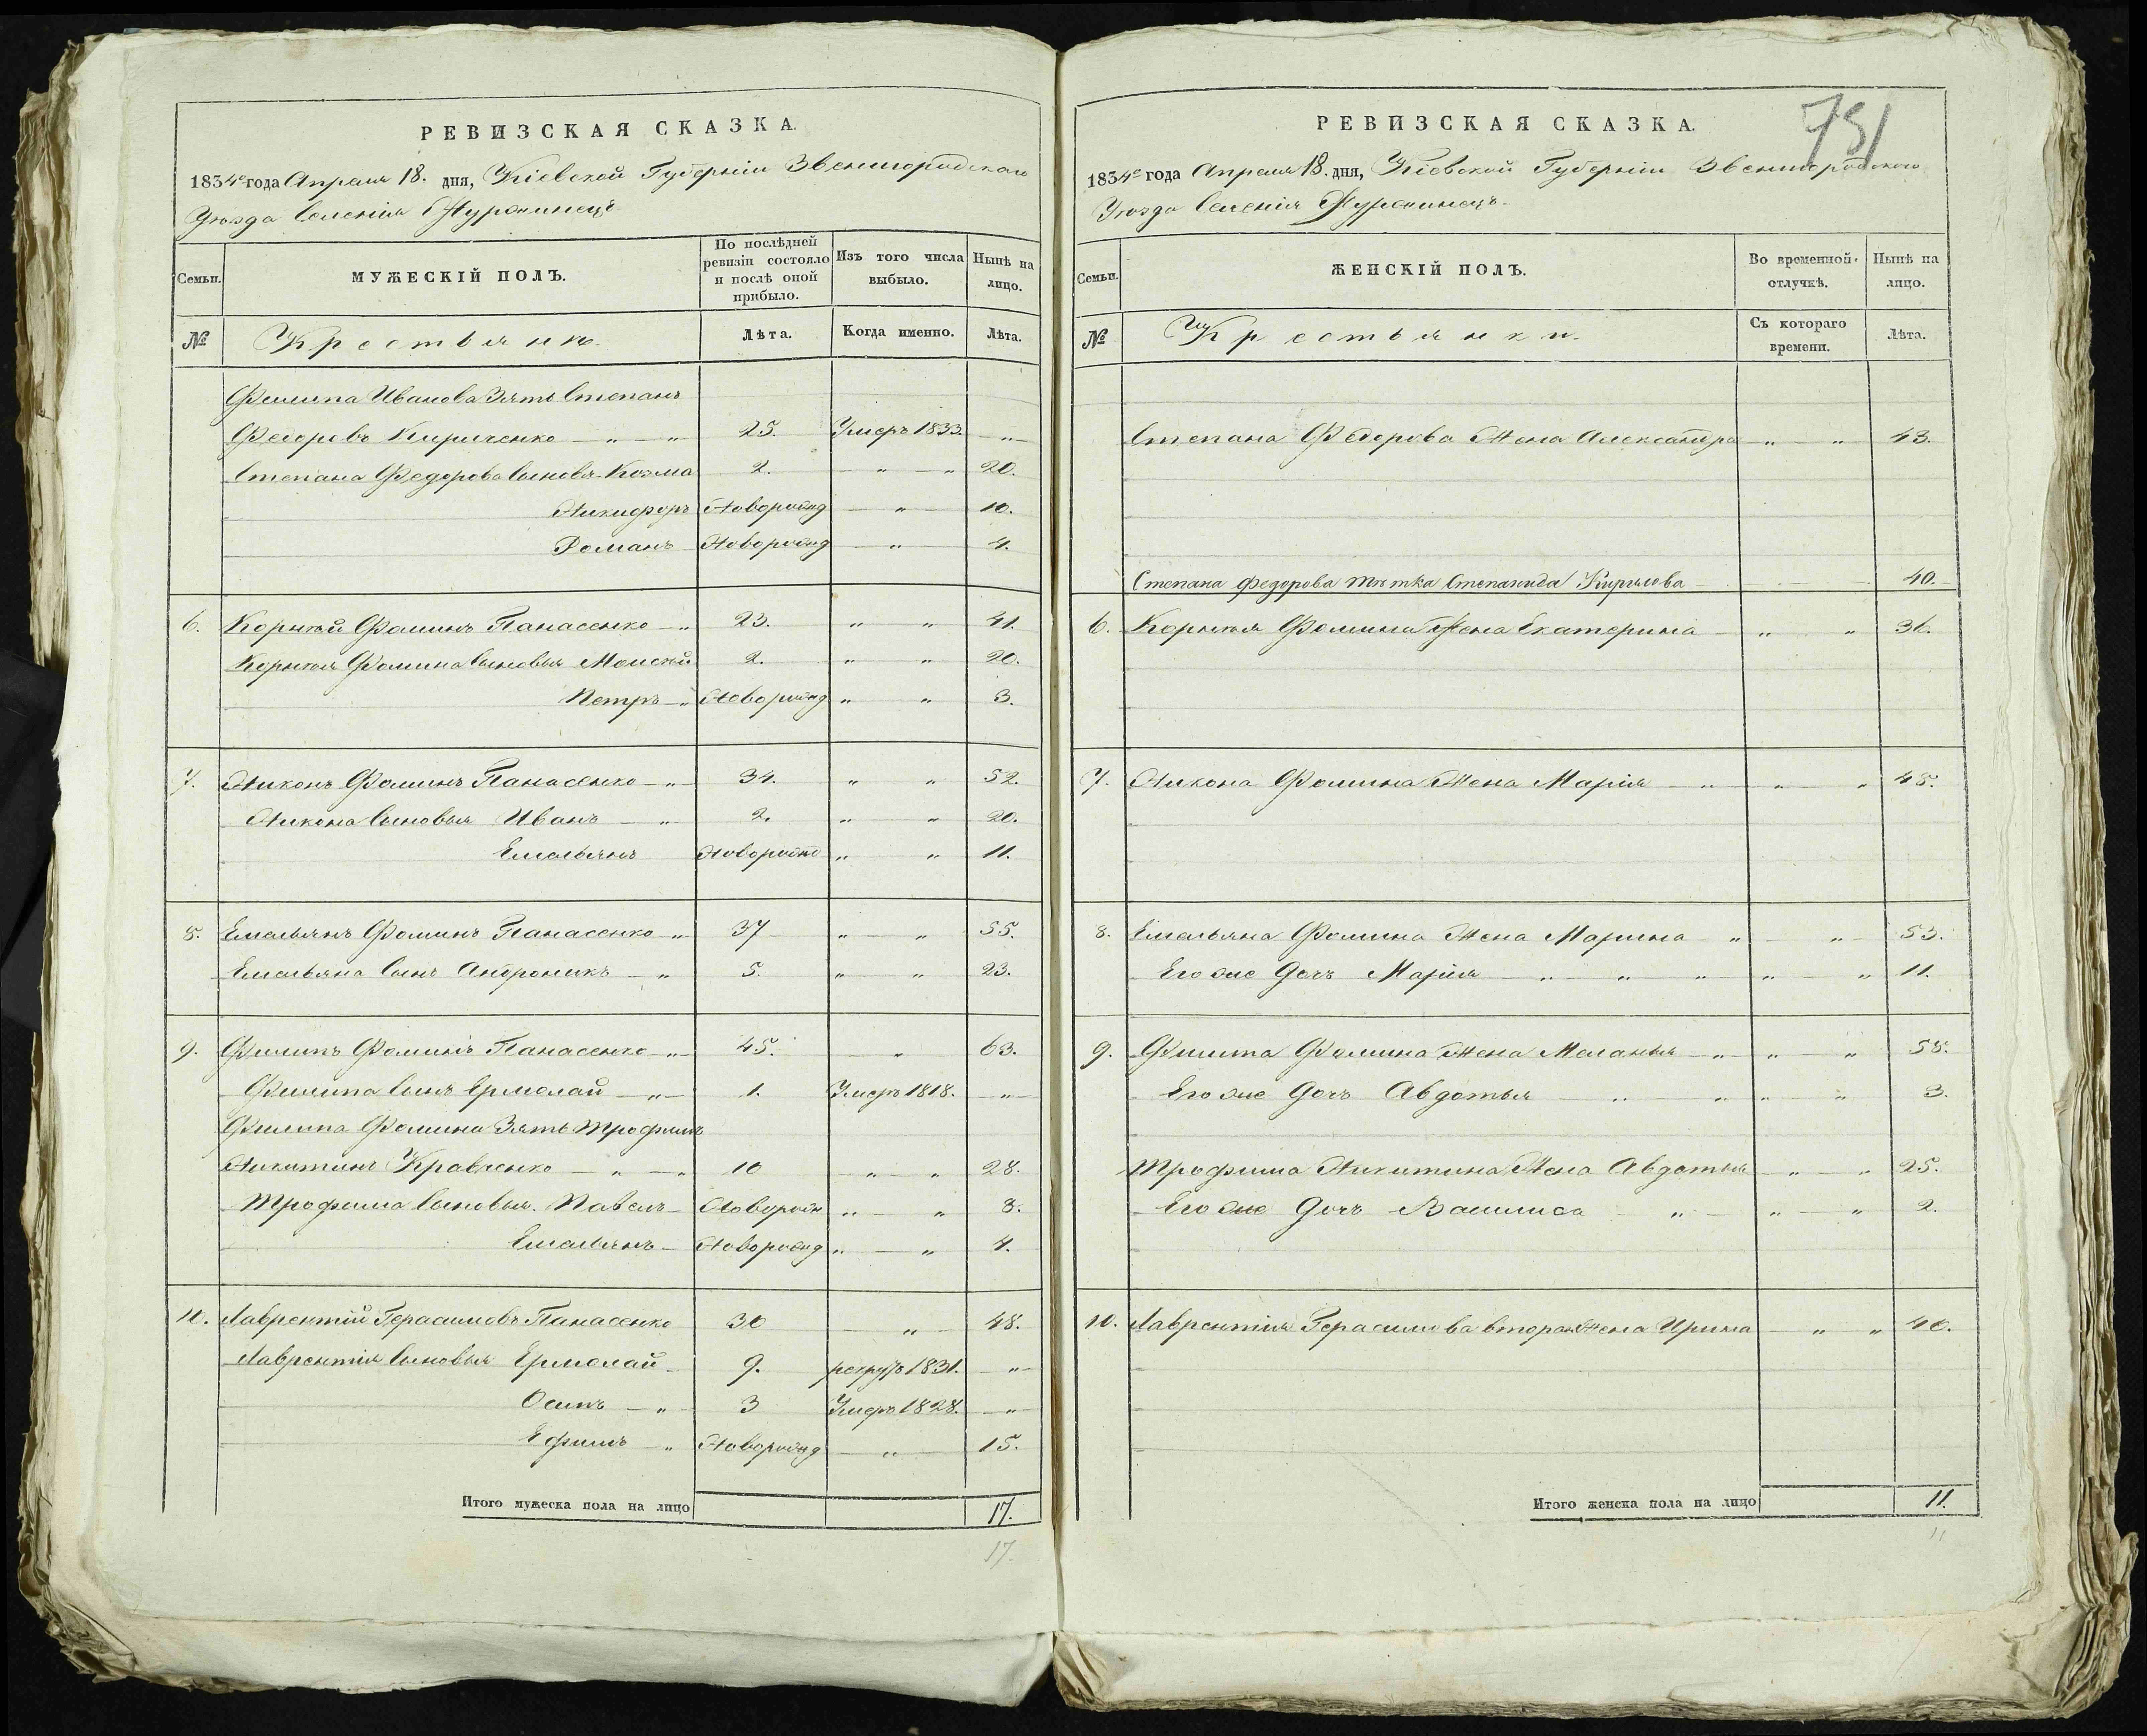 РЕВИЗСКАЯ СКАЗКА.
1834го года Апреля 18. дня, Кіевской Губерніи Звенигородскаго
Уѣзда Селенія
Семьи. МУЖЕСКІЙ ПОЛЪ. По послѣдней ревизіи состояло и послѣ оной прибыло. Изъ того числа выбыло. Нынѣ на лицо.
№ Крестьяне. Лѣта. Когда именно. Лѣта.
Филипа Иванова Зять Степанъ
Федоровъ Кириченко — „ — „ 25. Умеръ 1833. „
Степана Федорова Сыновья Козма 2. „ „ 20.
Никифоръ Новорожд „ 10.
Романъ Новорожд „ 4.
6. Корнѣй Фоминъ Панасенко „ 23. „ „ 41.
Корнѣя Фомина Сыновья Моисѣй 2. „ „ 20.
Петръ „ Новорожд „ „ 3.
7. Никонъ Фоминъ Панасенко „ 34. „ „ 52.
Никона Сыновья Иванъ „ 2. „ „ 20.
Емельянъ Новорожд „ „ 11.
8. Емельянъ Фоминъ Панасенко „ 37 „ „ 55.
Емельяна Сынъ Андроникъ „ 5. „ „ 23.
9. Филипъ Фоминъ Панасенко „ 45. „ 63.
Филипа Сынъ Ермолай „ 1. Умеръ 1818. „
Филипа Фомина Зять Трофимъ
Никитинъ Кравченко „ „ 10 „ „ 28.
Трофима Сыновья. Павелъ Новорожд „ „ 8.
Емельянъ Новорожд „ „ 4.
10. Лаврентій Герасимовъ Панасенко 30 „ 48.
Лаврентія Сыновья Ермолай 9. рекрутъ 1831. „
Осипъ „ 3 Умеръ 1828. „
Ефимъ „ Новорожд „ 15.
Итого мужеска пола на лицо 17.
17.
751
РЕВИЗСКАЯ СКАЗКА.
1834го года Апреля 18. дня, Кіевской Губерніи Звенигородскаго
Уѣзда Селенія
Семьи. ЖЕНСКІЙ ПОЛЪ. Во временной отлучкѣ. Нынѣ на лицо.
№ Крестьянки. Съ котораго времени. Лѣта.
Степана Федорова Жена Александра „ „ 43.
Степана Федорова тѣтка Степанида Кирилова 40.
6. Корнѣя Фомина Жена Екатерина „ „ 36.
7. Никона Фомина Жена Марія „ „ „ 45.
8. Емельяна Фомина Жена Марина „ „ 53.
Его же Дочь Марія „ „ „ „ „ 11.
9. Филипа Фомина Жена Меланья „ „ „ 58.
Его же Дочь Авдотья „ „ „ „ 3.
Трофима Никитина Жена Авдотья „ „ 25.
Его же Дочь Василиса „ „ „ 2.
10. Лаврентія Герасимова вторая Жена Ирина „ „ 40.
Итого женска пола на лицо 11.
11